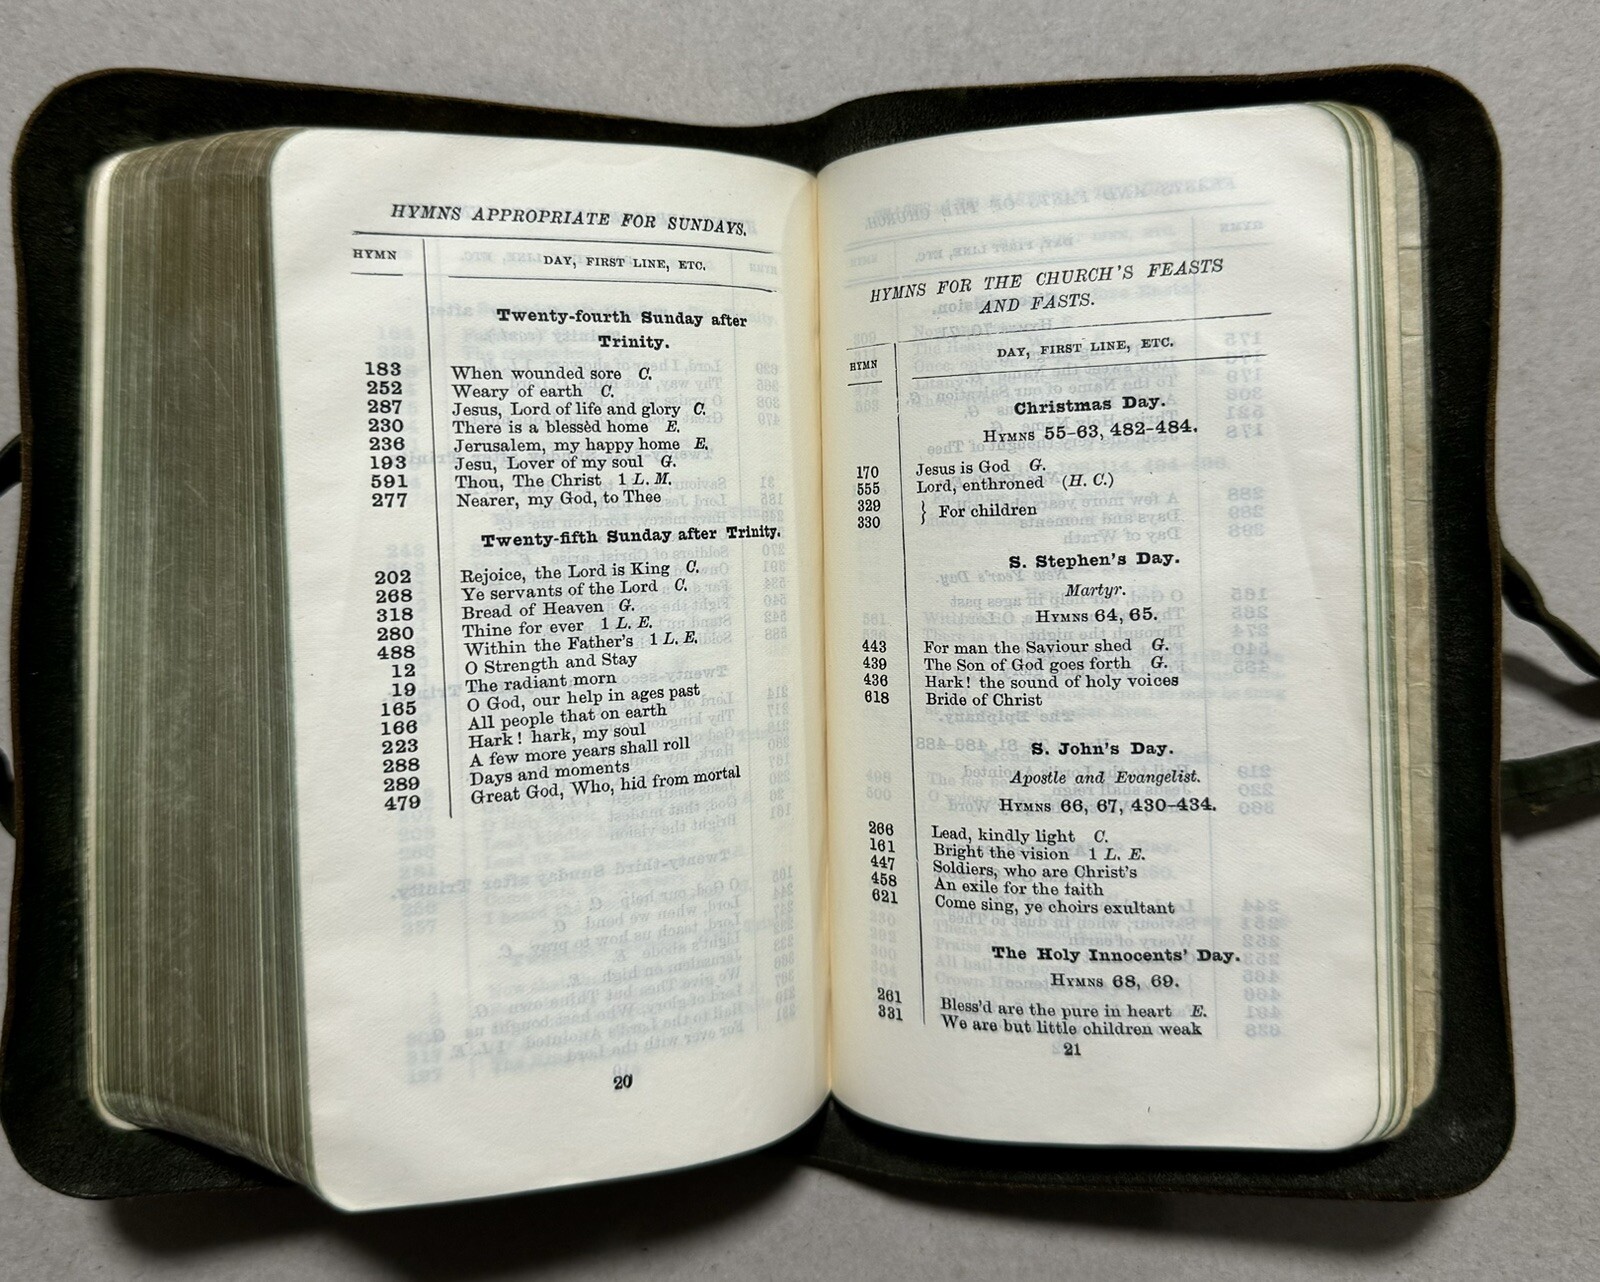 HYMNS APPROPRIATE FOR SUNDAYS.
HYMN DAY, FIRST LINE, ETC.
Twenty-fourth Sunday after
Trinity.
183 When wounded sore C.
252 Weary of earth C.
287 Jesus, Lord of life and glory C.
230 There is a blessèd home E.
236 Jerusalem, my happy home E.
193 Jesu, Lover of my soul G.
591 Thou, The Christ 1 L. M.
277 Nearer, my God, to Thee
Twenty-fifth Sunday after Trinity.
202 Rejoice, the Lord is King C.
268 Ye servants of the Lord C.
318 Bread of Heaven G.
280 Thine for ever 1 L. E.
488 Within the Father's 1 L. E.
12 O Strength and Stay
19 The radiant morn
165 O God, our help in ages past
166 All people that on earth
223 Hark! hark, my soul
288 A few more years shall roll
289 Days and moments
479 Great God, Who, hid from mortal
20
HYMNS FOR THE CHURCH'S FEASTS
AND FASTS.
HYMN DAY, FIRST LINE, ETC.
Christmas Day.
HYMNS 55-63, 482-484.
170 Jesus is God G.
555 Lord, enthroned (H. C.)
329
330 } For children
S. Stephen's Day.
Martyr.
HYMNS 64, 65.
443 For man the Saviour shed G.
439 The Son of God goes forth G.
436 Hark! the sound of holy voices
618 Bride of Christ
S. John's Day.
Apostle and Evangelist.
HYMNS 66, 67, 430-434.
266 Lead, kindly light C.
161 Bright the vision 1 L. E.
447 Soldiers, who are Christ's
458 An exile for the faith
621 Come sing, ye choirs exultant
The Holy Innocents' Day.
HYMNS 68, 69.
261 Bless'd are the pure in heart E.
331 We are but little children weak
21